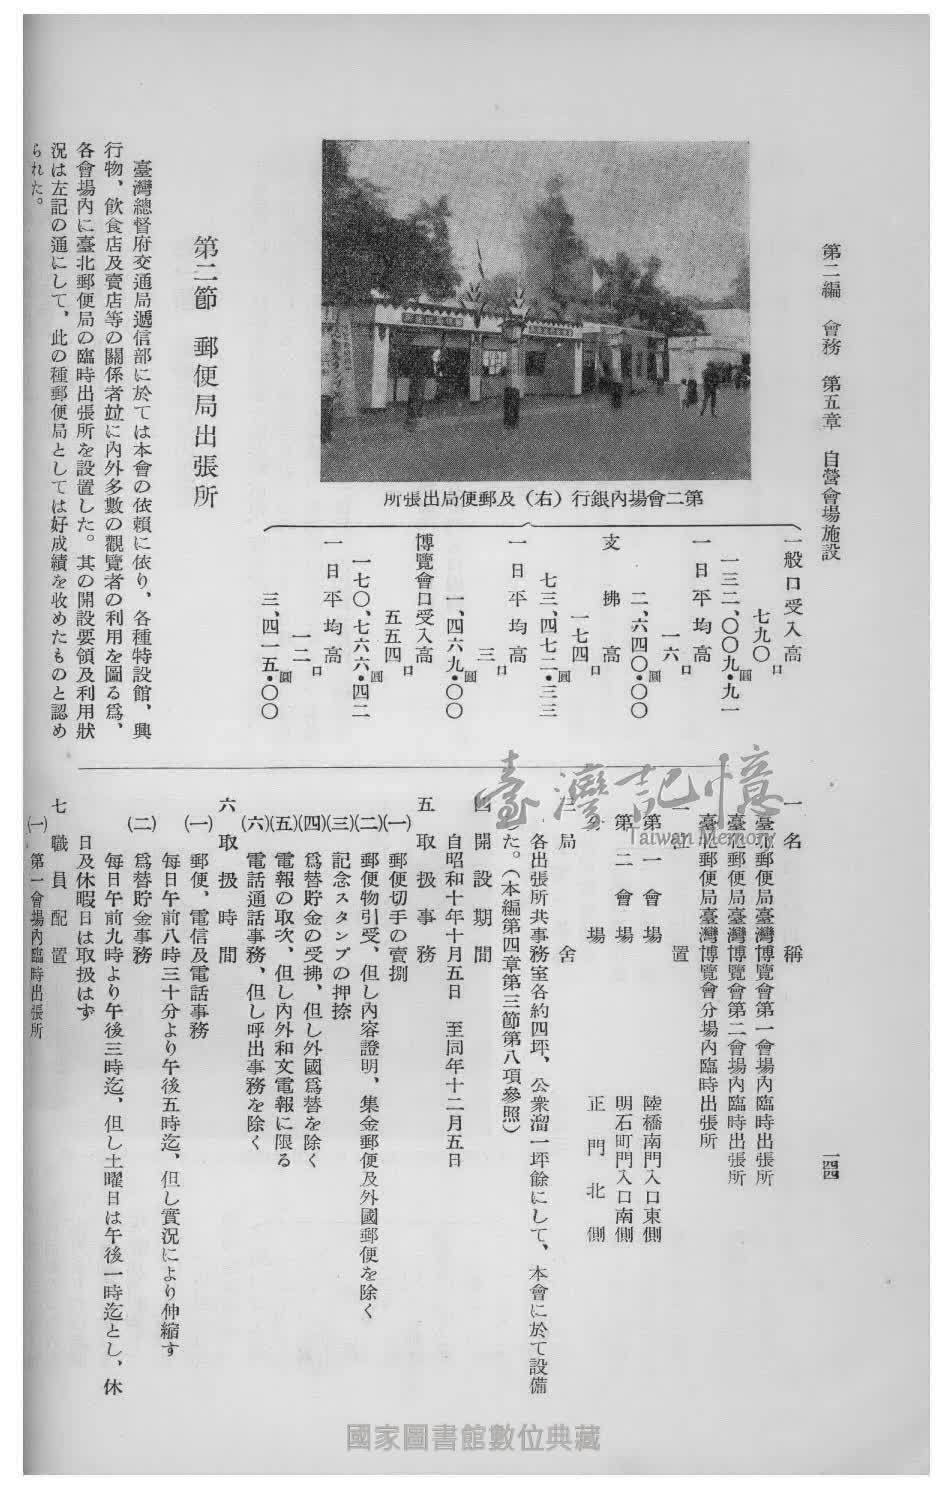 第二編 會務 第五章 自營會場施設
一四四
第二會場內銀行(右)及郵便局出張所
一般口受入高
七九〇口
一三二、〇〇九・九一圓
一日平均高
一六口
二、六四〇・〇〇圓
支拂高
一七四口
七三、四七二・三三圓
一日平均高
三口
一、四六九・〇〇圓
博覽會口受入高
五五四口
一七〇、七六六・四二圓
一日平均高
一二口
三、四一五・〇〇圓
第二節 郵便局出張所
臺灣總督府交通局遞信部に於ては本會の依賴に依り、各種特設館、興
行物、飮食店及賣店等の關係者竝に內外多數の觀覽者の利用を圖る爲、
各會場內に臺北郵便局の臨時出張所を設置した。其の開設要領及利用狀
況は左記の通にして、此の種郵便局としては好成績を收めたものと認め
られた。
一 名稱
臺北郵便局臺灣博覽會第一會場內臨時出張所
臺北郵便局臺灣博覽會第二會場內臨時出張所
臺北郵便局臺灣博覽會分場內臨時出張所
二 位置
第一會場 陸橋南門入口東側
第二會場 明石町門入口南側
分場 正門北側
三 局舍
各出張所共事務室各約四坪、公衆溜一坪餘にして、本會に於て設備
した。(本編第四章第三節第八項參照)
四 開設期間
自昭和十年十月五日 至同年十二月五日
五 取扱事務
(一) 郵便切手の賣捌
(二) 郵便物引受、但し內容證明、集金郵便及外國郵便を除く
(三) 記念スタンプの押捺
(四) 爲替貯金の受拂、但し外國爲替を除く
(五) 電報の取次、但し內外和文電報に限る
(六) 電話通話事務、但し呼出事務を除く
六 取扱時間
(一) 郵便、電信及電話事務
每日午前八時三十分より午後五時迄、但し實況により伸縮す
(二) 爲替貯金事務
每日午前九時より午後三時迄、但し土曜日は午後一時迄とし、休
日及休暇日は取扱はず
七 職員配置
(一) 第一會場內臨時出張所
臺灣記憶
Taiwan Memory
國家圖書館數位典藏